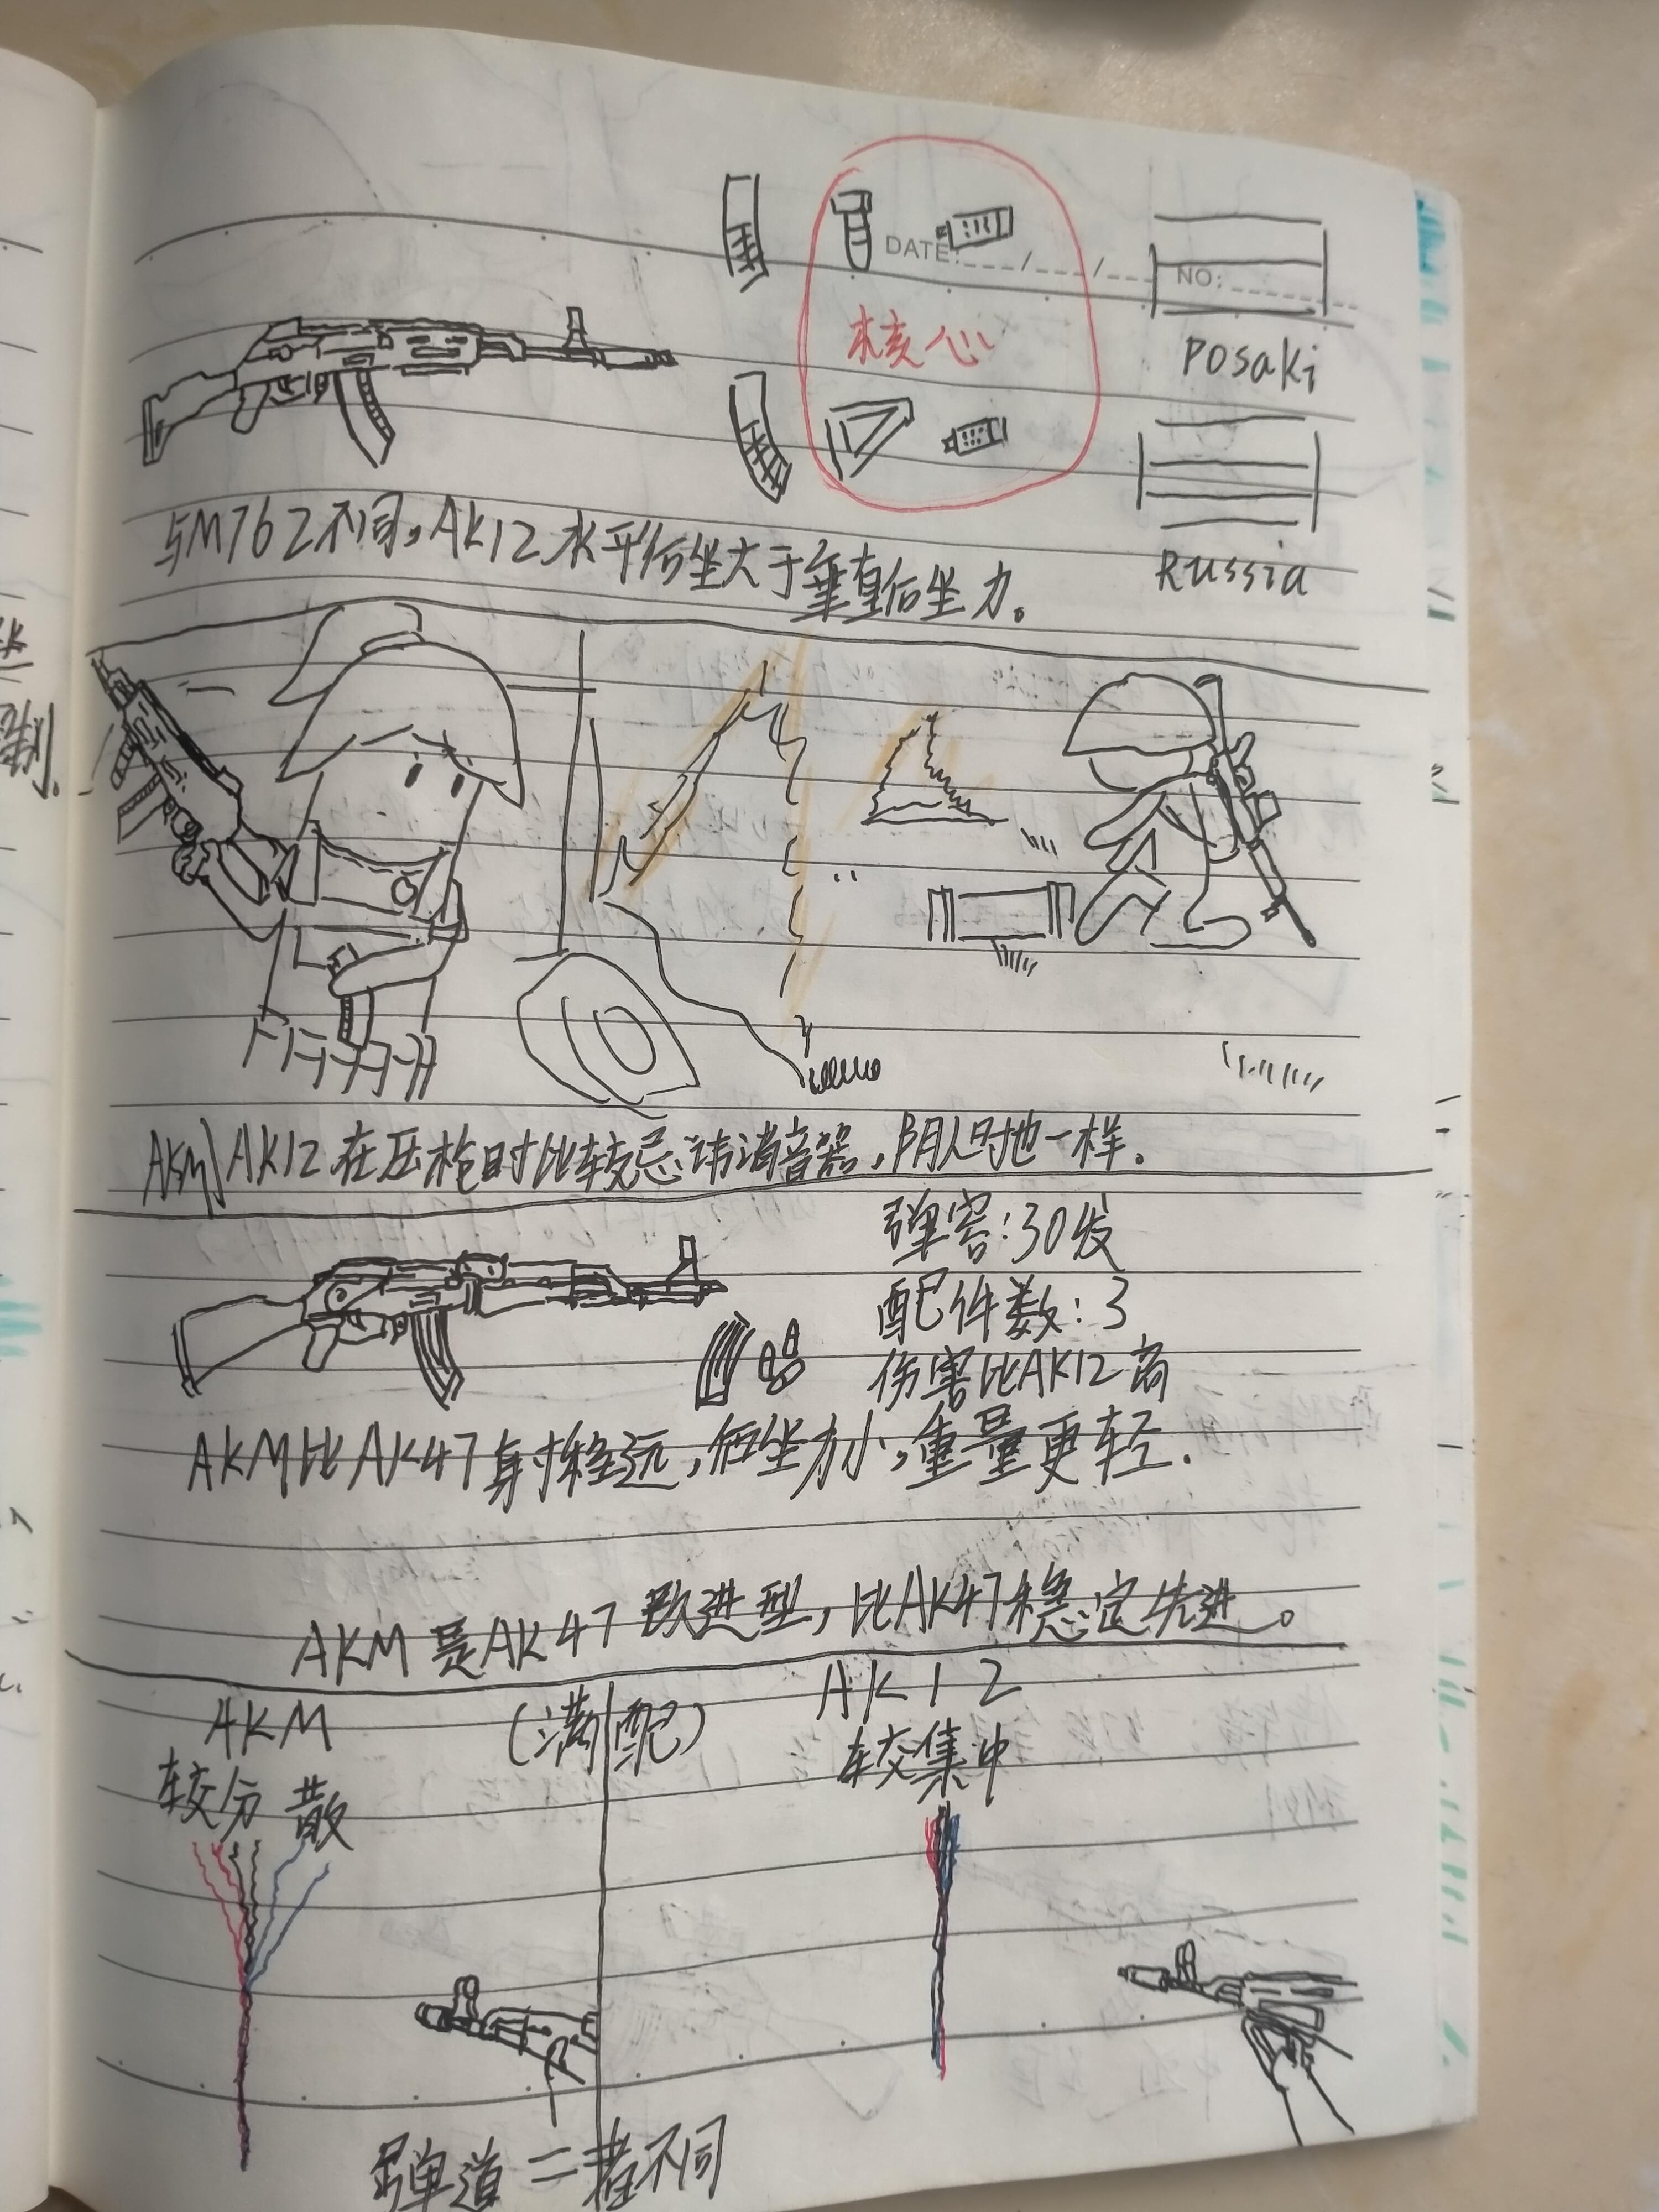 DATE: / /
NO:
核心
Posaki
Russia
与M762不同,AK12水平后坐大于垂直后坐力。
AKM\AK12在压枪时比较忌讳消音器,阴人时也一样。
弹容:30发
配件数:3
伤害比AK12高
AKM比AK47射程远,后坐力小,重量更轻.
AKM是AK47改进型,比AK47稳定先进。
AKM
(满配)
AK12
较分散
较集中
弹道二者不同